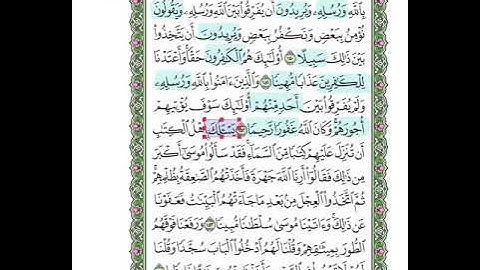 بِٱللَّهِ وَرُسُلِهِۦ وَيُرِيدُونَ أَن يُفَرِّقُوا۟ بَيْنَ ٱللَّهِ وَرُسُلِهِۦ وَيَقُولُونَ
نُؤْمِنُ بِبَعْضٍ وَنَكْفُرُ بِبَعْضٍ وَيُرِيدُونَ أَن يَتَّخِذُوا۟
بَيْنَ ذَٰلِكَ سَبِيلًا ١٥٠ أُو۟لَٰٓئِكَ هُمُ ٱلْكَٰفِرُونَ حَقًّا وَأَعْتَدْنَا
لِلْكَٰفِرِينَ عَذَابًا مُّهِينًا ١٥١ وَٱلَّذِينَ ءَامَنُوا۟ بِٱللَّهِ وَرُسُلِهِۦ
وَلَمْ يُفَرِّقُوا۟ بَيْنَ أَحَدٍ مِّنْهُمْ أُو۟لَٰٓئِكَ سَوْفَ يُؤْتِيهِمْ
أُجُورَهُمْ وَكَانَ ٱللَّهُ غَفُورًا رَّحِيمًا ١٥٢ يَسْـَٔلُكَ أَهْلُ ٱلْكِتَٰبِ
أَن تُنَزِّلَ عَلَيْهِمْ كِتَٰبًا مِّنَ ٱلسَّمَآءِ فَقَدْ سَأَلُوا۟ مُوسَىٰٓ أَكْبَرَ
مِن ذَٰلِكَ فَقَالُوٓا۟ أَرِنَا ٱللَّهَ جَهْرَةً فَأَخَذَتْهُمُ ٱلصَّٰعِقَةُ بِظُلْمِهِمْ
ثُمَّ ٱتَّخَذُوا۟ ٱلْعِجْلَ مِنۢ بَعْدِ مَا جَآءَتْهُمُ ٱلْبَيِّنَٰتُ فَعَفَوْنَا
عَن ذَٰلِكَ وَءَاتَيْنَا مُوسَىٰ سُلْطَٰنًا مُّبِينًا ١٥٣ وَرَفَعْنَا فَوْقَهُمُ
ٱلطُّورَ بِمِيثَٰقِهِمْ وَقُلْنَا لَهُمُ ٱدْخُلُوا۟ ٱلْبَابَ سُجَّدًا وَقُلْنَا